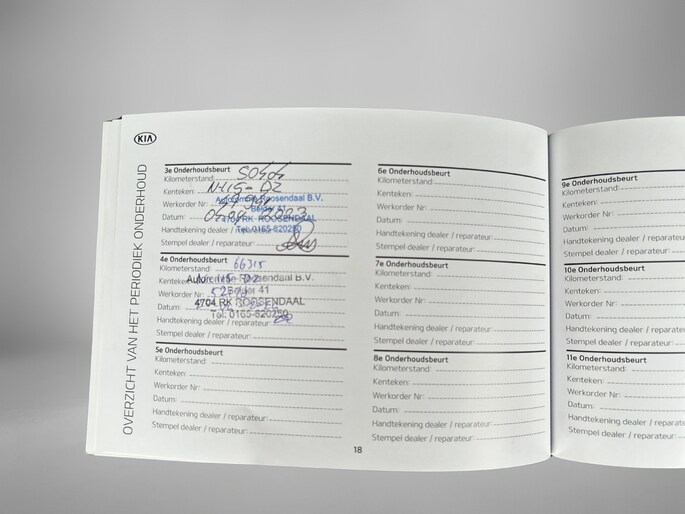 KIA
OVERZICHT VAN HET PERIODIEK ONDERHOUD
3e Onderhoudsbeurt
Kilometerstand: 50404
Kenteken: N-115-DZ
Werkorder Nr:
Datum: 2023
Handtekening dealer /
Stempel dealer / reparateur:
Autocentrale Roosendaal B.V.
4704 RK ROOSENDAAL
Tel: 0165-820250
4e Onderhoudsbeurt
Kilometerstand: 66315
Kenteken:
Werkorder Nr:
Datum:
Handtekening dealer / reparateur:
Stempel dealer / reparateur:
Roosendaal B.V.
41
4704 RK ROOSENDAAL
Tel: 0165-820250
5e Onderhoudsbeurt
Kilometerstand:
Kenteken:
Werkorder Nr:
Datum:
Handtekening dealer / reparateur:
Stempel dealer / reparateur:
6e Onderhoudsbeurt
Kilometerstand:
Kenteken:
Werkorder Nr:
Datum:
Handtekening dealer / reparateur:
Stempel dealer / reparateur:
7e Onderhoudsbeurt
Kilometerstand:
Kenteken:
Werkorder Nr:
Datum:
Handtekening dealer / reparateur:
Stempel dealer / reparateur:
8e Onderhoudsbeurt
Kilometerstand:
Kenteken:
Werkorder Nr:
Datum:
Handtekening dealer / reparateur:
Stempel dealer / reparateur:
18
9e Onderhoudsbeurt
Kilometerstand:
Kenteken:
Werkorder Nr:
Datum:
Handtekening dealer / reparateur:
Stempel dealer / reparateur:
10e Onderhoudsbeurt
Kilometerstand:
Kenteken:
Werkorder Nr:
Datum:
Handtekening dealer / reparateur
Stempel dealer / reparateur:
11e Onderhoudsbeurt
Kilometerstand:
Kenteken:
Werkorder Nr:
Datum:
Handtekening dealer / reparateur
Stempel dealer / reparateur: